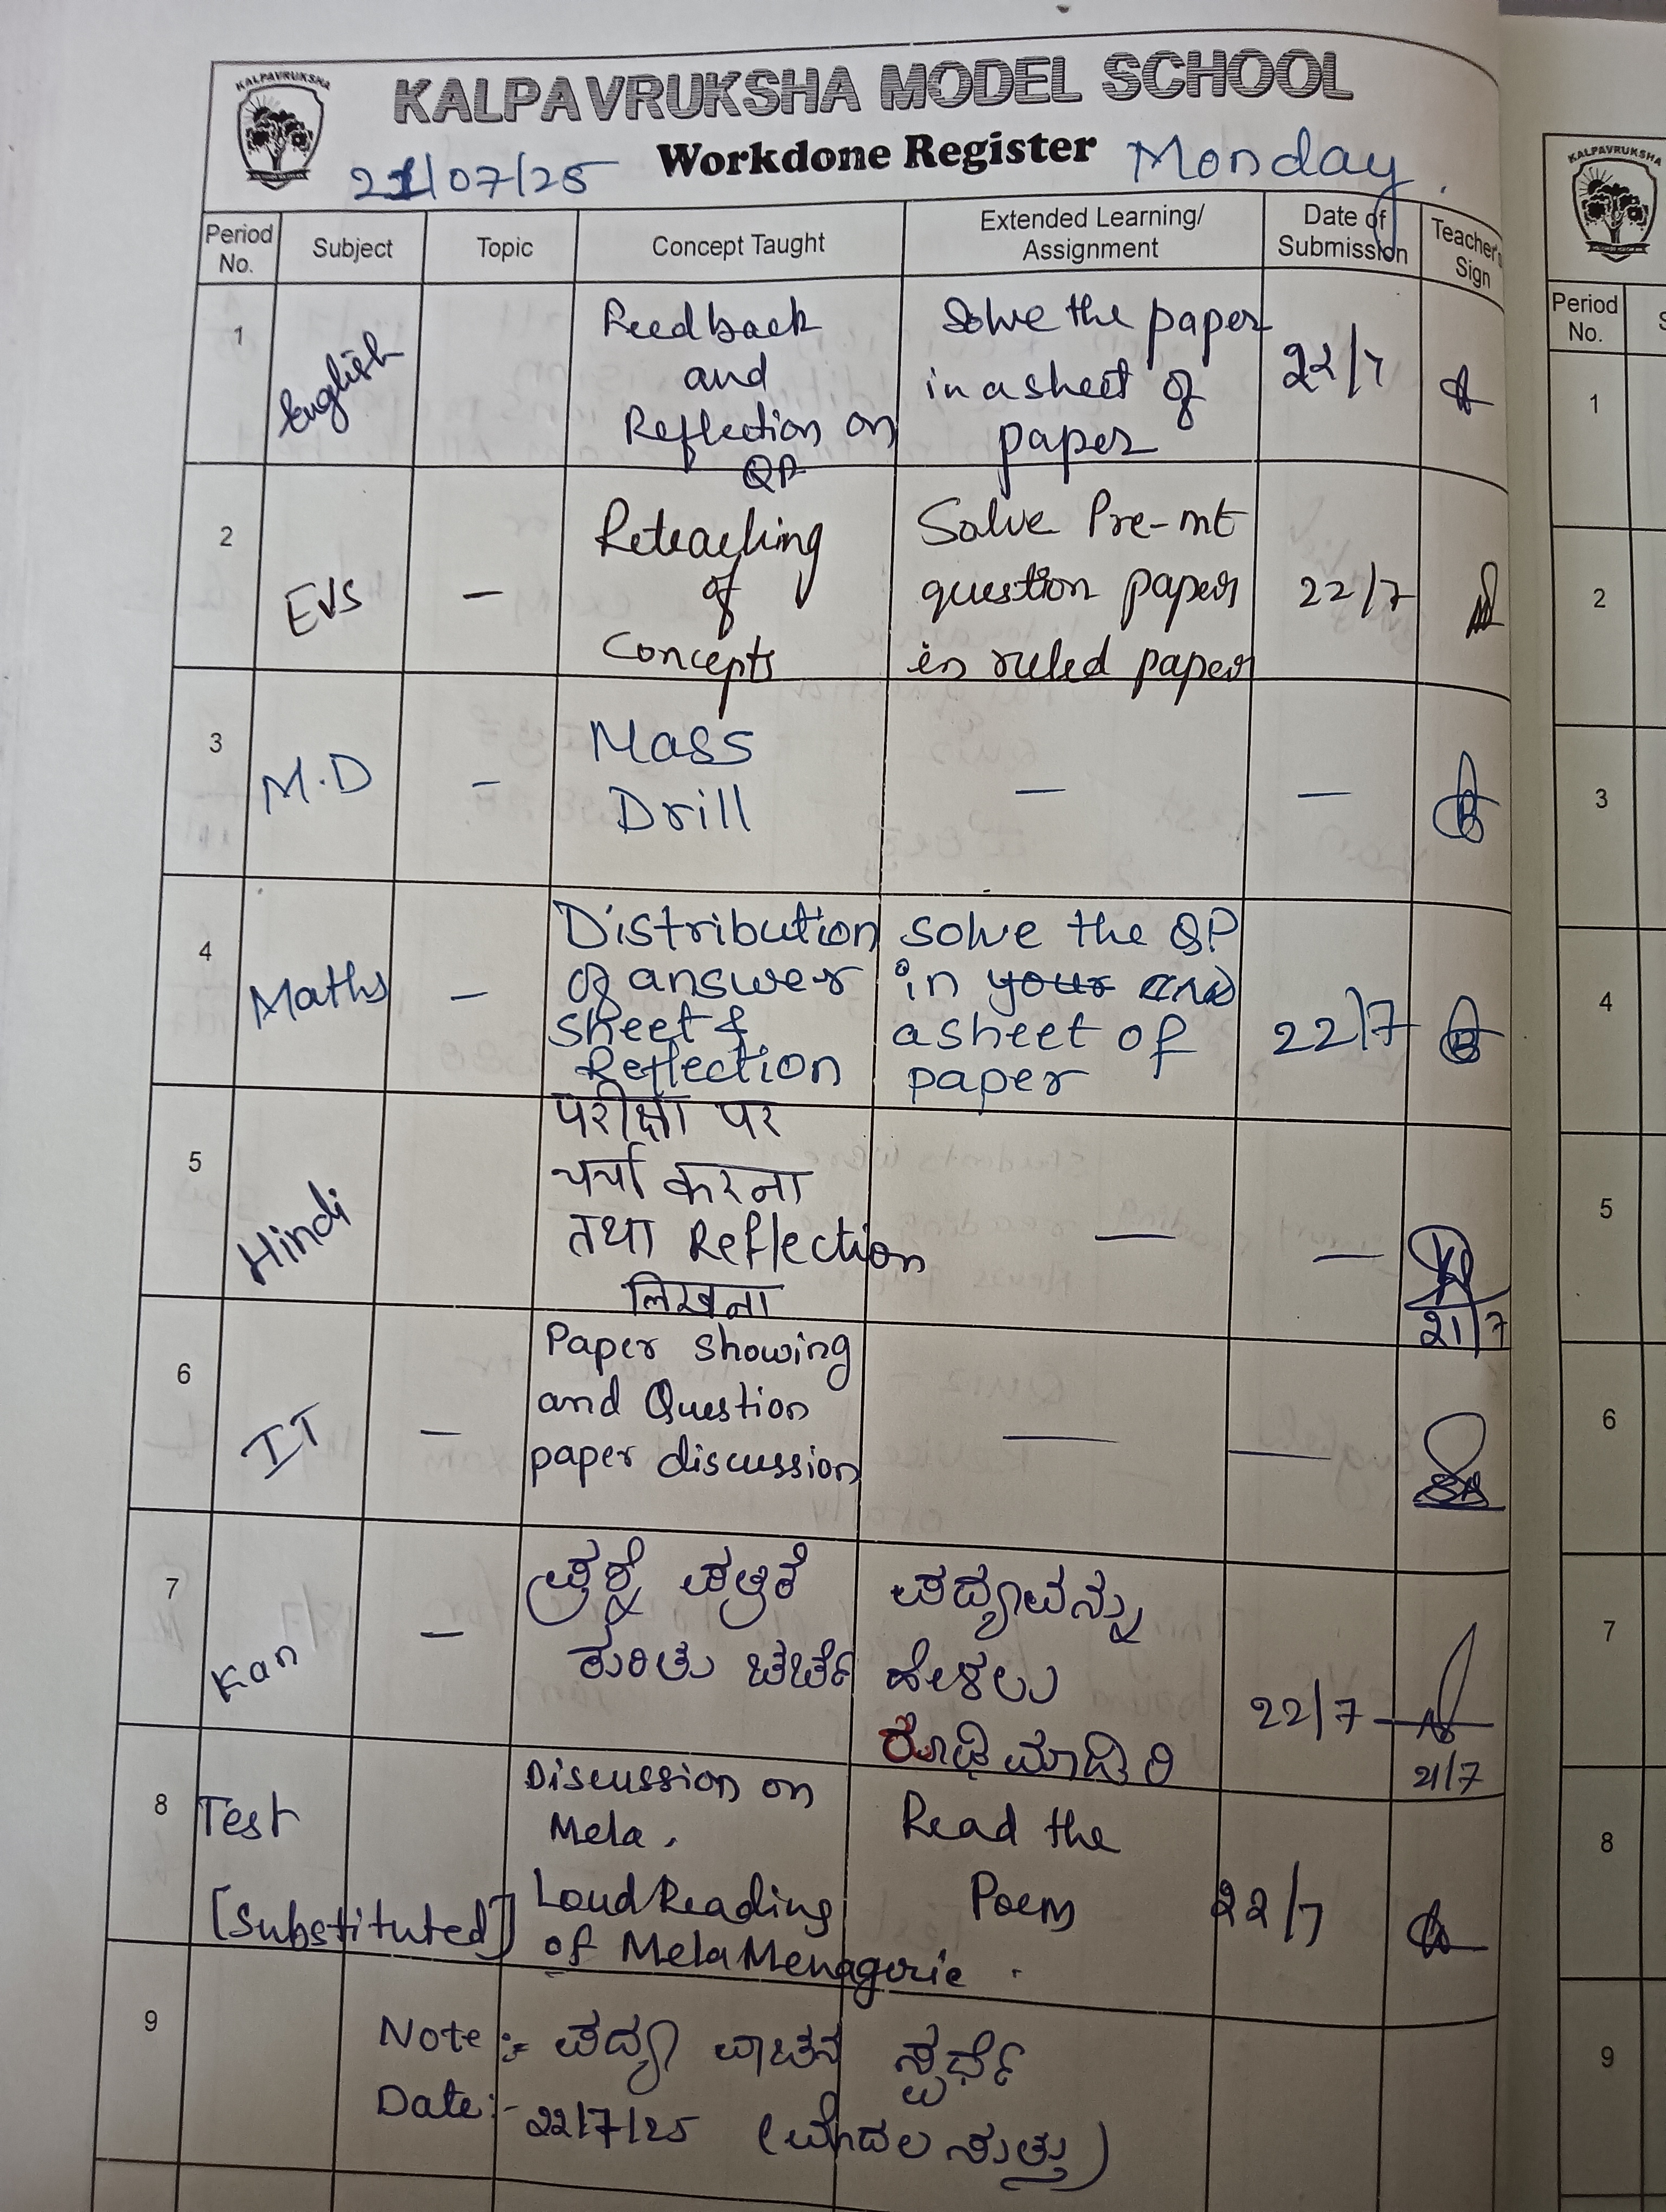 KALPAVRUKSHA
KALPAVRUKSHA MODEL SCHOOL
Workdone Register
21/07/25
Monday
Period No.
Subject
Topic
Concept Taught
Extended Learning/ Assignment
Date of Submission
Teacher's Sign
1
English
Feedback
and
Reflection on
QP
Solve the paper
in a sheet of
paper
22/7
2
EVS
–
Reteaching
of
Concepts
Solve Pre-mt
question paper
in ruled paper
22/7
3
M.D
–
Mass
Drill
–
–
4
Maths
–
Distribution
of answer
sheet &
Reflection
solve the QP
in your
a sheet of
paper
22/7
5
Hindi
परीक्षा पर
चर्चा करना
तथा Reflection
लिखना
–
–
21/7
6
IT
–
Paper showing
and Question
paper discussion
–
–
7
Kan
–
ಪ್ರಶ್ನೆ ಪತ್ರಿಕೆ
ಕುರಿತು ಚರ್ಚೆ
ಪದ್ಯವನ್ನು
ಹೇಳಲು
ರೂಢಿ ಮಾಡಿರಿ
22/7
21/7
8
Test
[Substituted]
Discussion on
Mela.
Loud Reading
of Mela Menagerie.
Read the
Poem
22/7
9
Note :- ಪದ್ಯ ವಾಚನ ಸ್ಪರ್ಧೆ
Date:- 22/7/25 (ಮೊದಲ ಸುತ್ತು)
KALPAVRUKSHA
Period No.
S
1
2
3
4
5
6
7
8
9